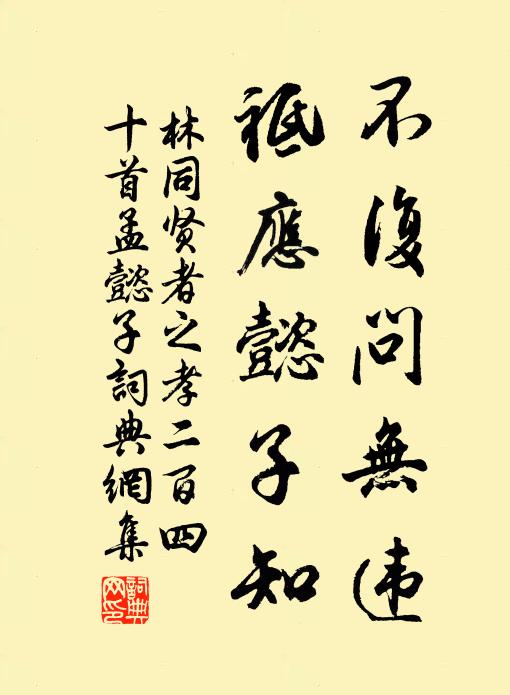 不復問無违
祗應懿子知
林同贤者之孝二百四
十首孟懿子詞典網集
詞典网印